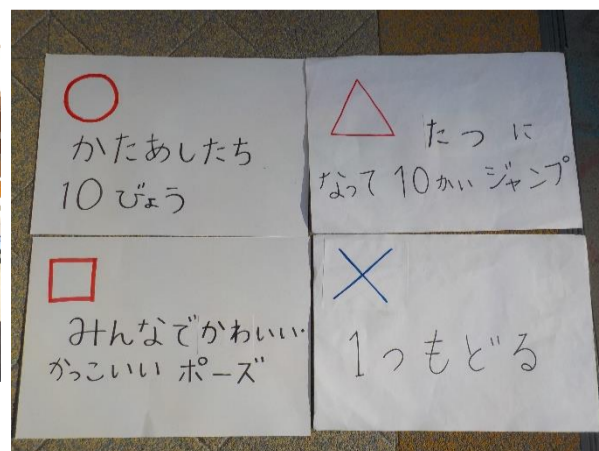 かたあしたち
10びょう
たつ に
なって 10かい ジャンプ
みんなでかわいい・
かっこいい ポーズ
1つもどる